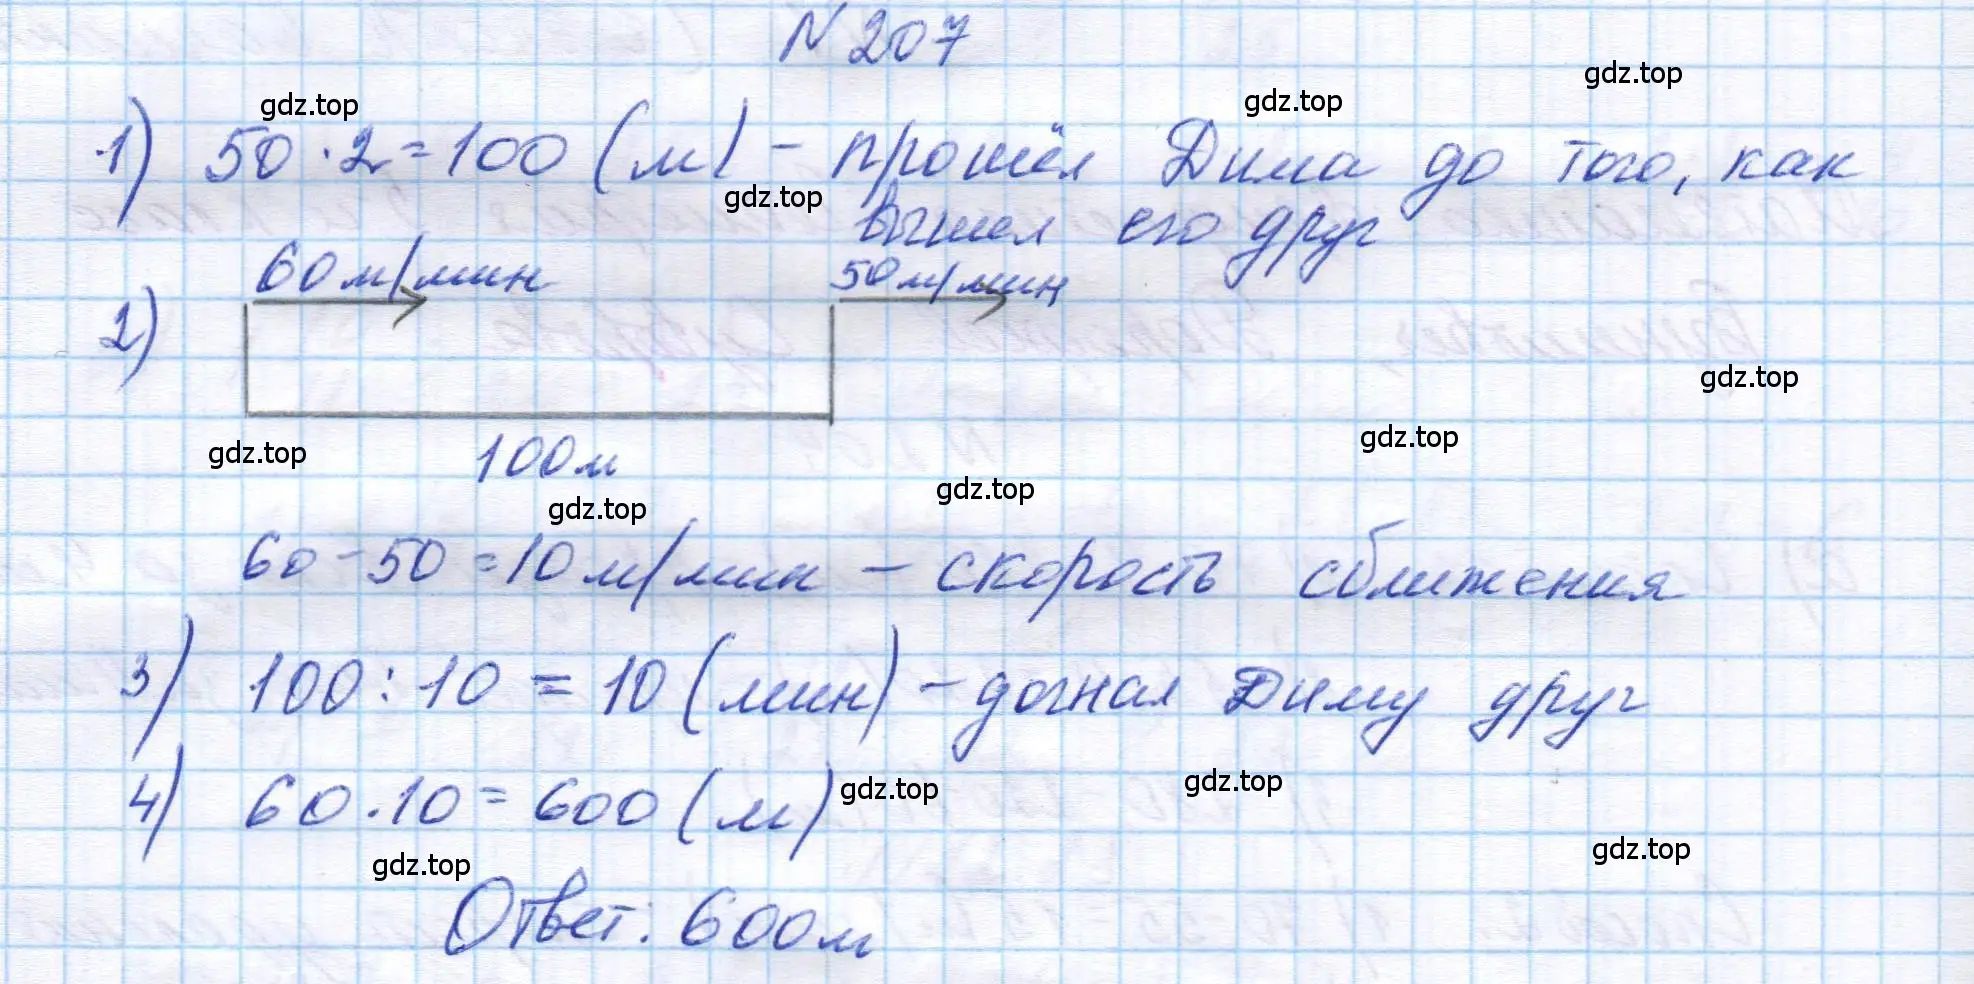 N 207
gdz.top
gdz.top
gdz.top
1) 50 · 2 = 100 (м) – прошёл Дима до того, как
gdz.top
вышел его друг
2) 60 м/мин 50 м/мин
gdz.top
100 м
gdz.top
gdz.top
gdz.top
gdz.top
60 – 50 = 10 м/мин – скорость сближения
3) 100 : 10 = 10 (мин) – догнал Диму друг
4) 60 · 10 = 600 (м)
gdz.top
gdz.top
gdz.top
gdz.top
Ответ: 600 м